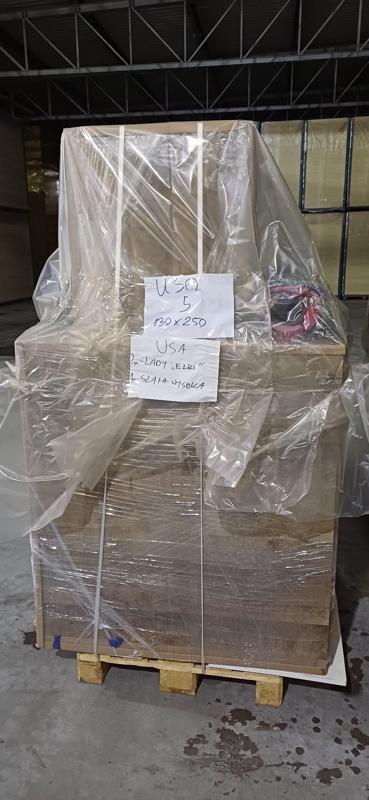 USA
5
130 x 250
USA
2x-LADY „ELKI"
1x SZAFA WYSOKA